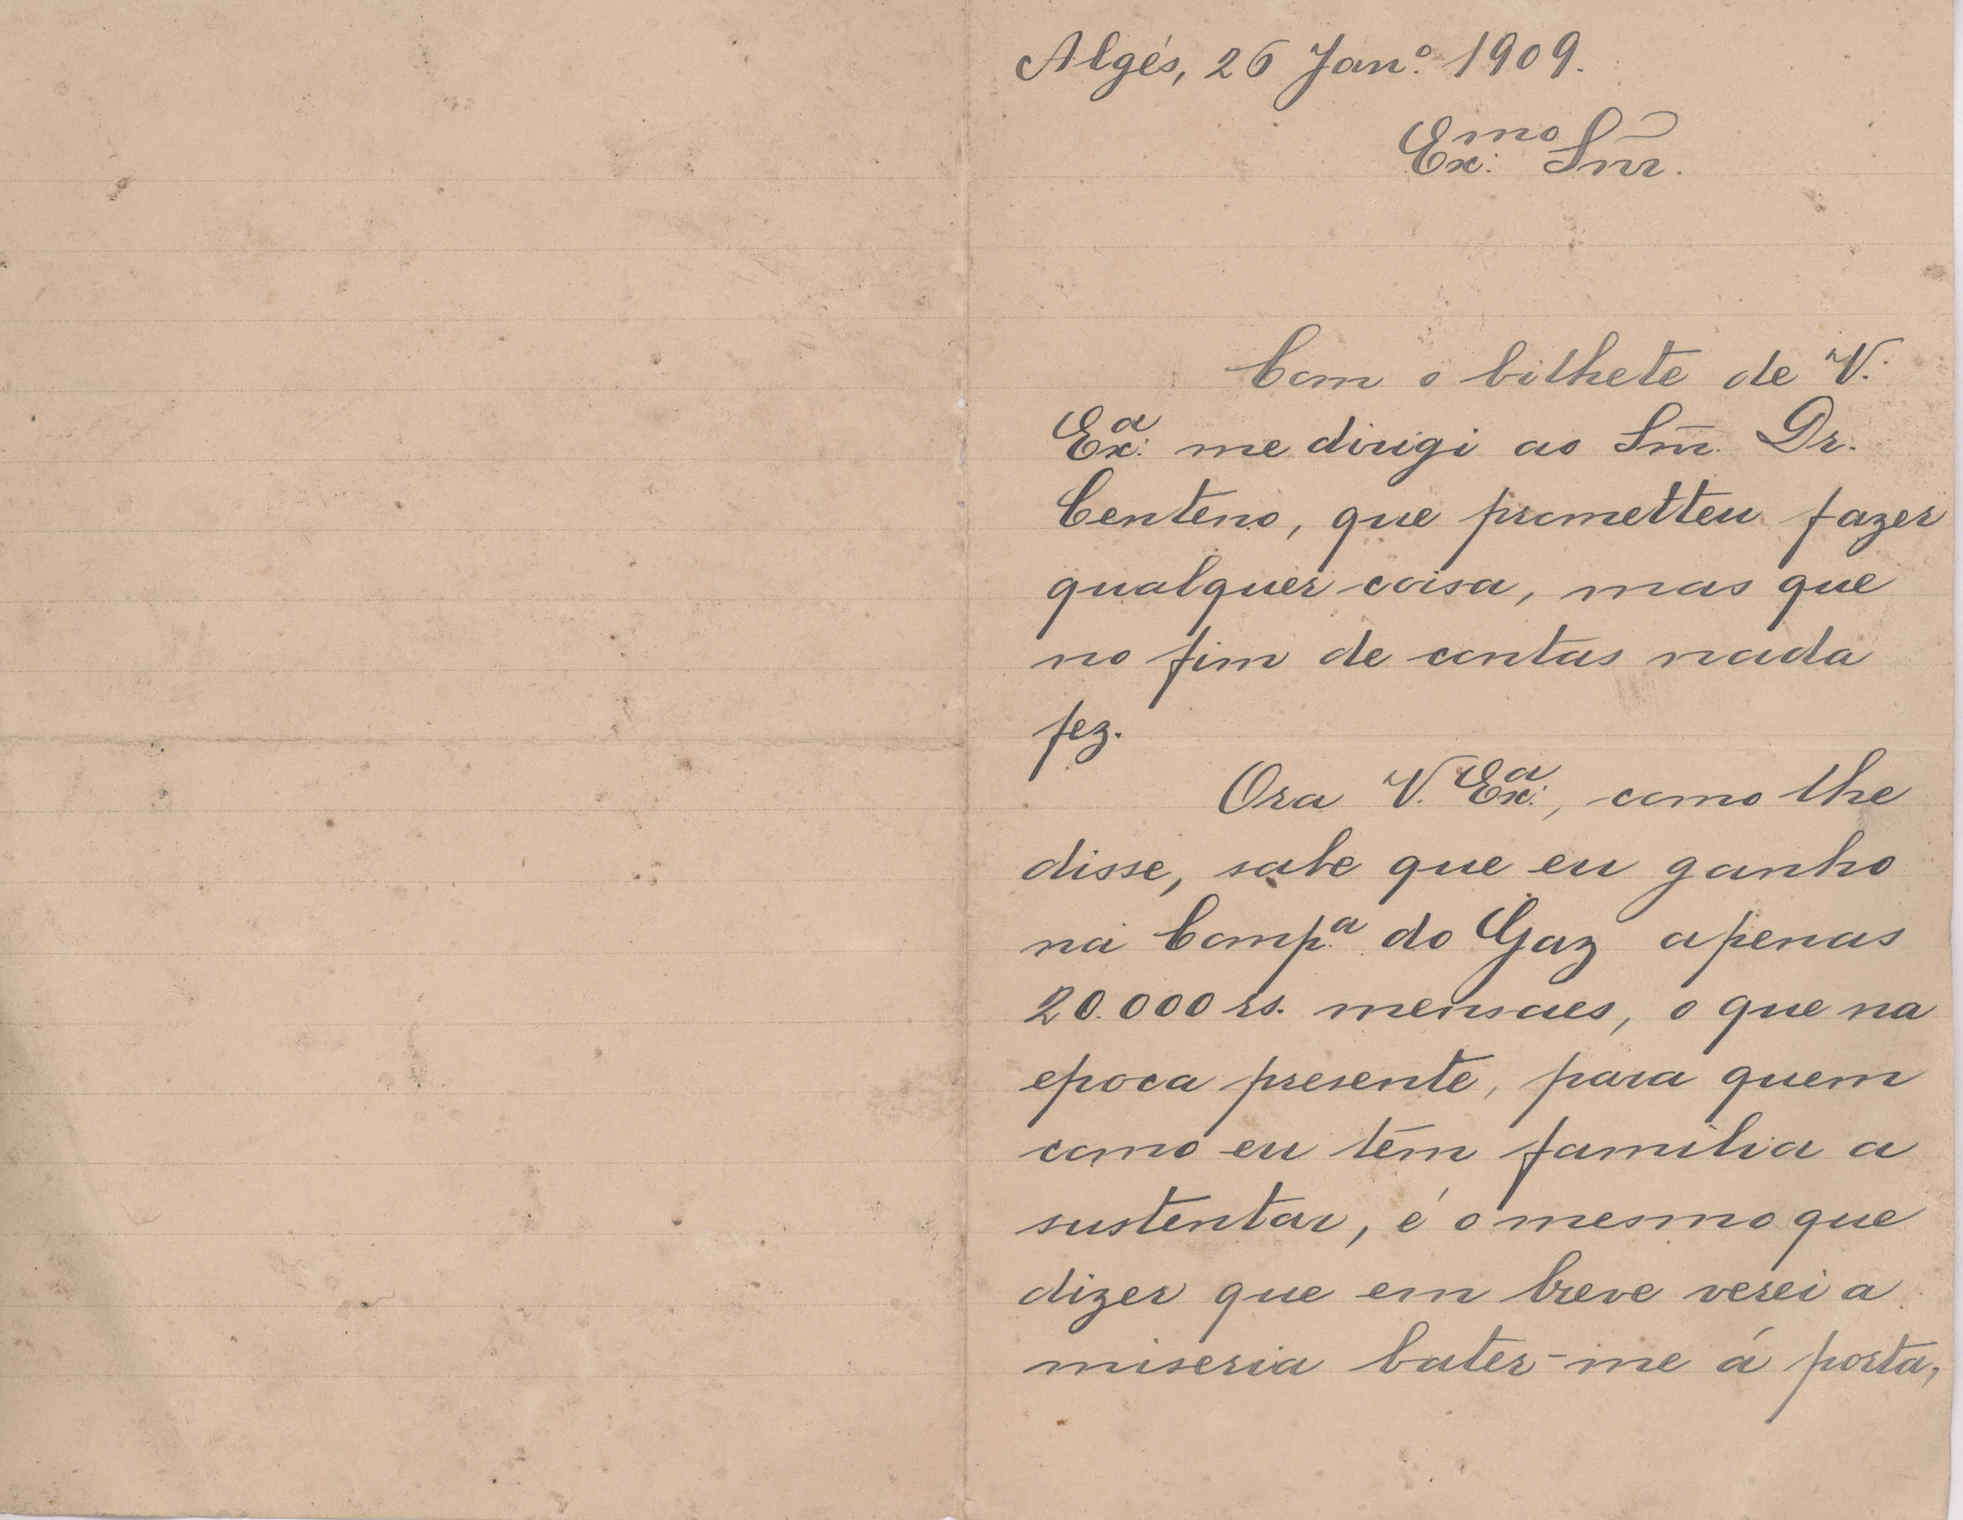 Algés, 26 Jan.º 1909.
Ex.mo Snr.
Com o bilhete de V.
Ex.a me dirigi ao Snr. Dr.
Centeno, que prometteu fazer
qualquer coisa, mas que
no fim de contas nada
fez.
Ora V. Ex.a, como lhe
disse, sabe que eu ganho
na Comp.a do Gaz apenas
20.000 rs. mensaes, o que na
epoca presente, para quem
como eu tem familia a
sustentar, é o mesmo que
dizer que em breve verei a
miseria bater-me á porta,